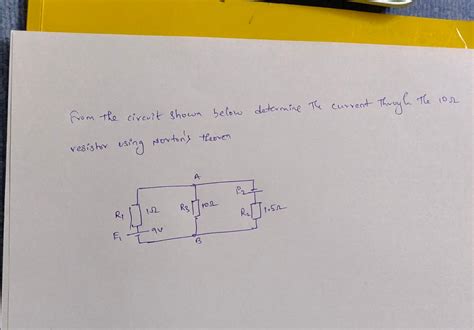 From the circuit shown below determine The current Through The 10Ω
resistor using Norton's Theorem
A
R1 1Ω R3 10Ω E2
R2 1.5Ω
E1 9V
B